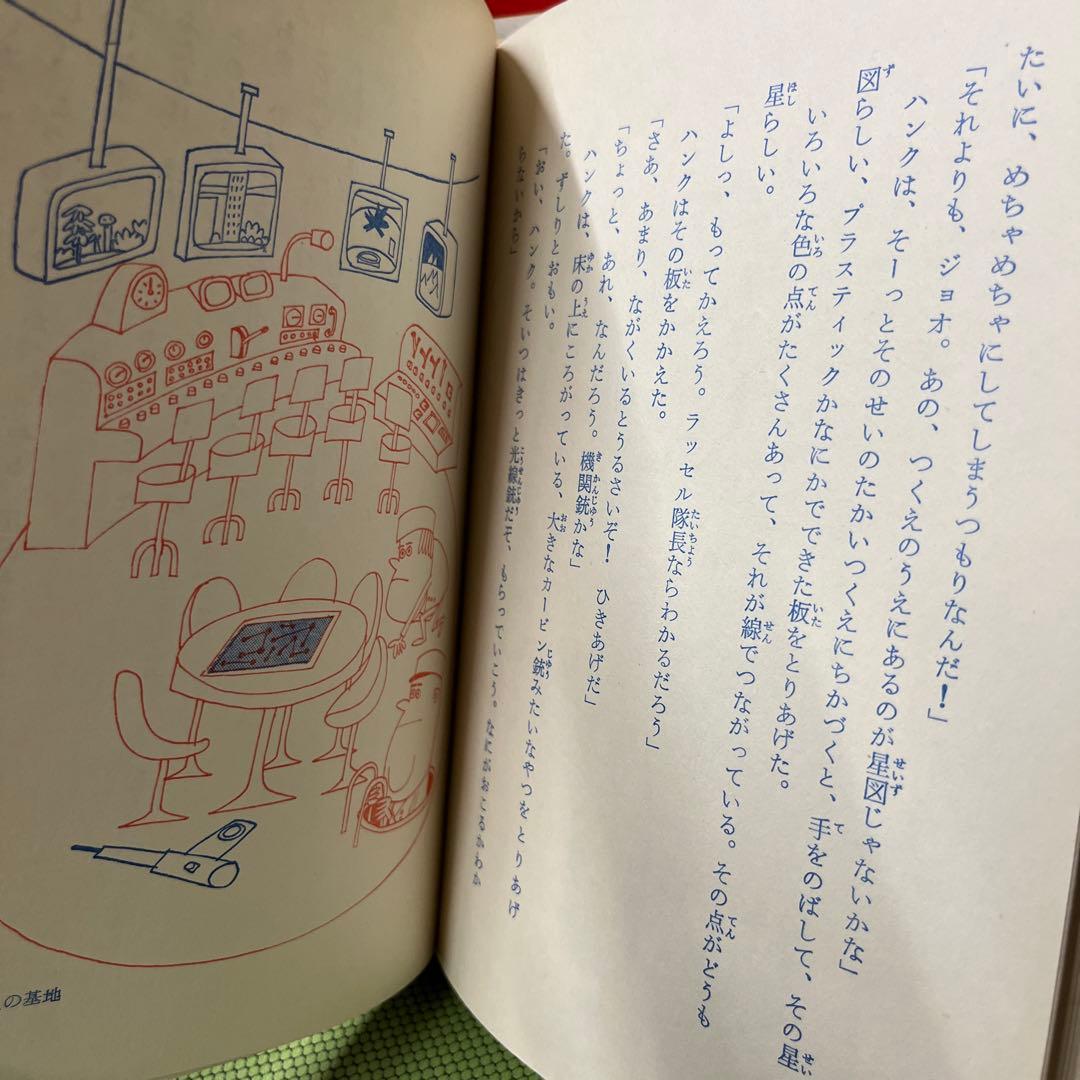 たいに、めちゃめちゃにしてしまうつもりなんだ！」
「それよりも、ジョオ。あの、つくえのうえにあるのが星図じゃないかな」
ハンクは、そーっとそのせいのたかいつくえにちかづくと、手をのばして、その星
図らしい、プラスティックかなにかでできた板をとりあげた。
いろいろな色の点がたくさんあって、それが線でつながっている。その点がどうも
星らしい。
「よしっ、もってかえろう。ラッセル隊長ならわかるだろう」
ハンクはその板をかかえた。
「さあ、あまり、ながくいるとうるさいぞ！　ひきあげだ」
「ちょっと、あれ、なんだろう。機関銃かな」
ハンクは、床の上にころがっている、大きなカービン銃みたいなやつをとりあげ
た。ずしりとおもい。
「おい、ハンク。そいつはきっと光線銃だぞ、もらっていこう。なにがおこるかわか
らないから」
の基地